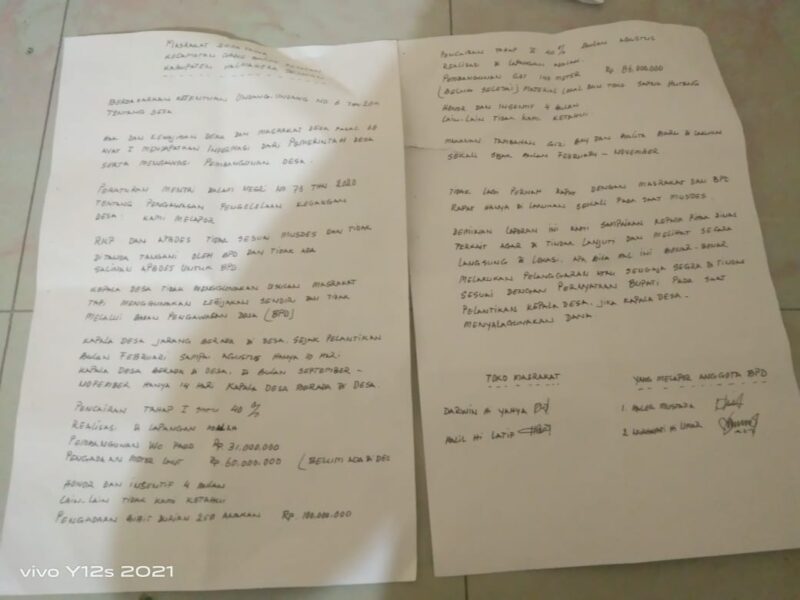 MASRAKAT DESA
KECAMATAN GANE
KABUPATEN HALMAHERA SELATAN
BERDASARKAN KETENTUAN UNDANG-UNDANG NO 6 THN 2014
TENTANG DESA
HAK DAN KEWAJIBAN DESA DAN MASRAKAT DESA PASAL 68
AYAT I MENDAPATKAN INFORMASI DARI PEMERINTAH DESA
SERTA MENGAWASI PEMBANGUNAN DESA.
PERATURAN MENTRI DALAM NEGRI NO 73 THN 2020
TENTANG PENGAWASAN PENGELOLAAN KEUANGAN
DESA. KAMI MELAPOR
RKP DAN APBDES TIDAK SESUAI MUSDES DAN TIDAK
DITANDA TANGANI OLEH BPD DAN TIDAK ADA
SALINAN APBDES UNTUK BPD
KEPALA DESA TIDAK MENGGUNAKAN USULAN MASRAKAT
TAPI MENGGUNAKAN KEBIJAKAN SENDIRI DAN TIDAK
MELALUI BADAN PENGAWASAN DESA (BPD)
KAPALA DESA JARANG BERADA DI DESA. SEJAK PELANTIKAN
BULAN FEBRUARI SAMPAI AGUSTUS HANYA 20 HARI
KAPALA DESA BERADA DI DESA. DI BULAN SEPTEMBER -
NOFEMBER HANYA 14 HARI KAPALA DESA BERADA DI DESA.
PENCAIRAN TAHAP I 40 %
REALISASI DI LAPANGAN
PEMBANGUNAN WC PAUD Rp 31.000.000
PENGADAAN MOTER LAUT Rp 60.000.000 (BELUM ADA DI DESA
HONOR DAN INSENTIF 4 BULAN
LAIN-LAIN TIDAK KAMI KETAHUI
PENGADAAN BIBIT DURIAN 250 ANAKAN Rp 100.000.000
PENCAIRAN TAHAP II 40 % BULAN AGUSTUS
REALISASI DI LAPANGAN ADALAH.
PEMBANGUNAN GOT 144 METER Rp 86.000.000
(BELUM SELESAI) MATERIAL LOKAL DAN TOKO SAMPAI HUTANG
HONOR DAN INSENTIF 4 BULAN
LAIN-LAIN TIDAK KAMI KETAHUI
MAKANAN TAMBAHAN GIZI BAYI DAN BALITA BARU DI LAKUKAN
SEKALI SEJAK BULAN FEBRUARI - NOVEMBER
TIDAK LAGI PERNAH RAPAT DENGAN MASRAKAT DAN BPD
RAPAT HANYA DI LAKUKAN SEKALI PADA SAAT MUSDES.
DEMIKIAN LAPORAN INI KAMI SAMPAIKAN KEPADA DINAS
TERKAIT AGAR DI TINDAK LANJUTI DAN MELIHAT SEGARA
LANGSUNG DI LOKASI. APA BILA HAL INI BENAR-BENAR
MELAKUKAN PELANGGARAN ATAU SENGAJA SEGRA DI TINDAK
SESUAI DENGAN PERNYATAAN BUPATI PADA SAAT
PELANTIKAN KEPALA DESA. JIKA KAPALA DESA -
MENYALAGUNAKAN DANA.
TOKO MASRAKAT
DARWIN H YAHYA
HALIL Hi LATIF
YANG MELAPOR ANGGOTA BPD
1. MUSTAFA
2. H UMAR
vivo Y12s 2021